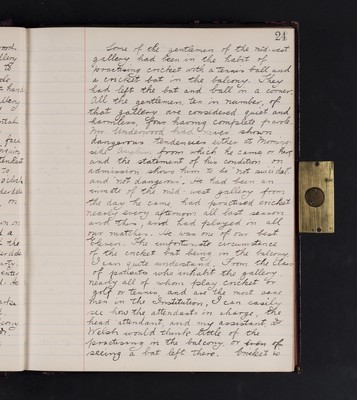 24
Some of the gentlemen of the mid-west
gallery had been in the habit of
practising cricket with a tennis ball and
a cricket bat in the balcony. They
had left the bat and ball in a corner.
All the gentlemen, ten in number, of
that gallery are considered quiet and
harmless, four having complete parole.
Mr Underwood had never shown
dangerous tendencies either at
from which he came or here
and the statement of his condition on
admission shows him to be not suicidal
and not dangerous. He had been an
inmate of the mid-west gallery from
the day he came, had practised cricket
nearly every afternoon all last season
and this, and had played in all
our matches. He was one of our best
eleven. The unfortunate circumstance
of the cricket bat being in the balcony
I can quite understand. From the class
of patients who inhabit the gallery
nearly all of whom play cricket or
golf or tennis and are the most sane
men in the Institution, I can easily
see how the attendant in charge, the
head attendant, and my assistant Dr
Welsh would think little of the
practising in the balcony or even of
seeing a bat left there. Cricket is